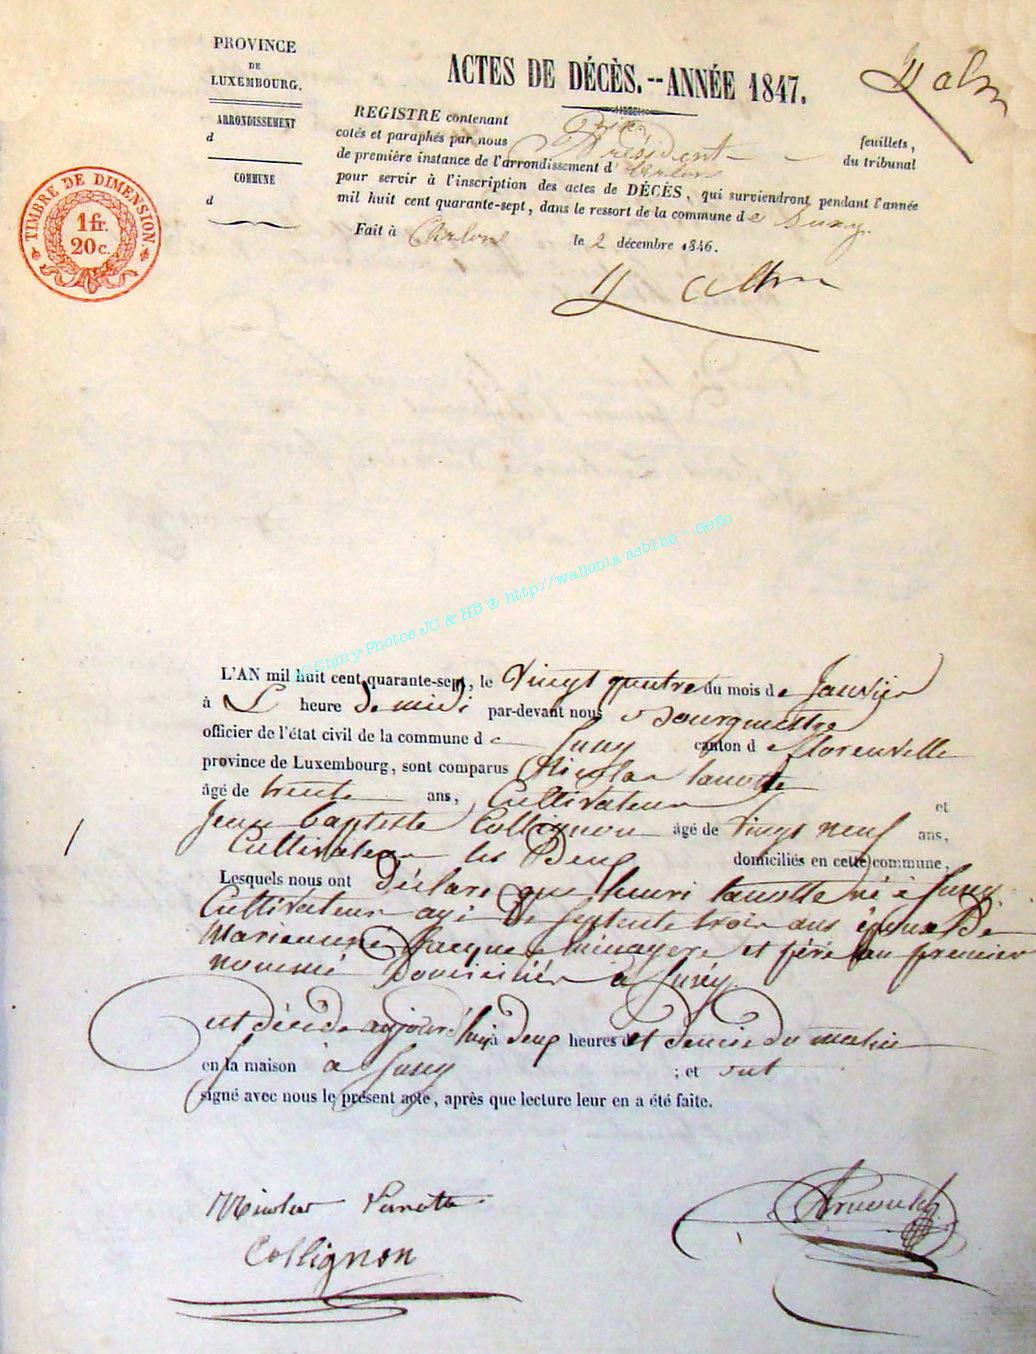 PROVINCE
DE
LUXEMBOURG.
ARRONDISSEMENT
d
COMMUNE
d
TIMBRE DE DIMENSION
1 fr.
20 c.
ACTES DE DÉCÈS.--ANNÉE 1847.
REGISTRE contenant Six feuillets,
cotés et paraphés par nous Président du tribunal
de première instance de l'arrondissement d'Arlon
pour servir à l'inscription des actes de DÉCÈS, qui surviendront pendant l'année
mil huit cent quarante-sept, dans le ressort de la commune de Suxy.
Fait à Arlon le 2 décembre 1846.
JC Chiny-Photos JC & HB ® http//wallonia-asbl.be - Geflo
L'AN mil huit cent quarante-sept, le Vingt quatre du mois de Janvier
à L heure de midi par-devant nous Bourgmestre
officier de l'état civil de la commune de Suxy canton de florenville
province de Luxembourg, sont comparus Nicolas lanotte
âgé de trente ans, Cultivateur et
Jean baptiste Collignon âgé de vingt neuf ans,
Cultivateur les Deux domiciliés en cette commune,
Lesquels nous ont déclaré que henri lanotte né à Suxy
Cultivateur agé de septente trois ans époux De
Marienne Jacque ménagere et père au premier
nommé Domicilié a Suxy
est décédé aujourd'hui à deux heures et demies du matin
en sa maison à Suxy ; et ont
signé avec nous le présent acte, après que lecture leur en a été faite.
Nicolas Lanotte
Collignon